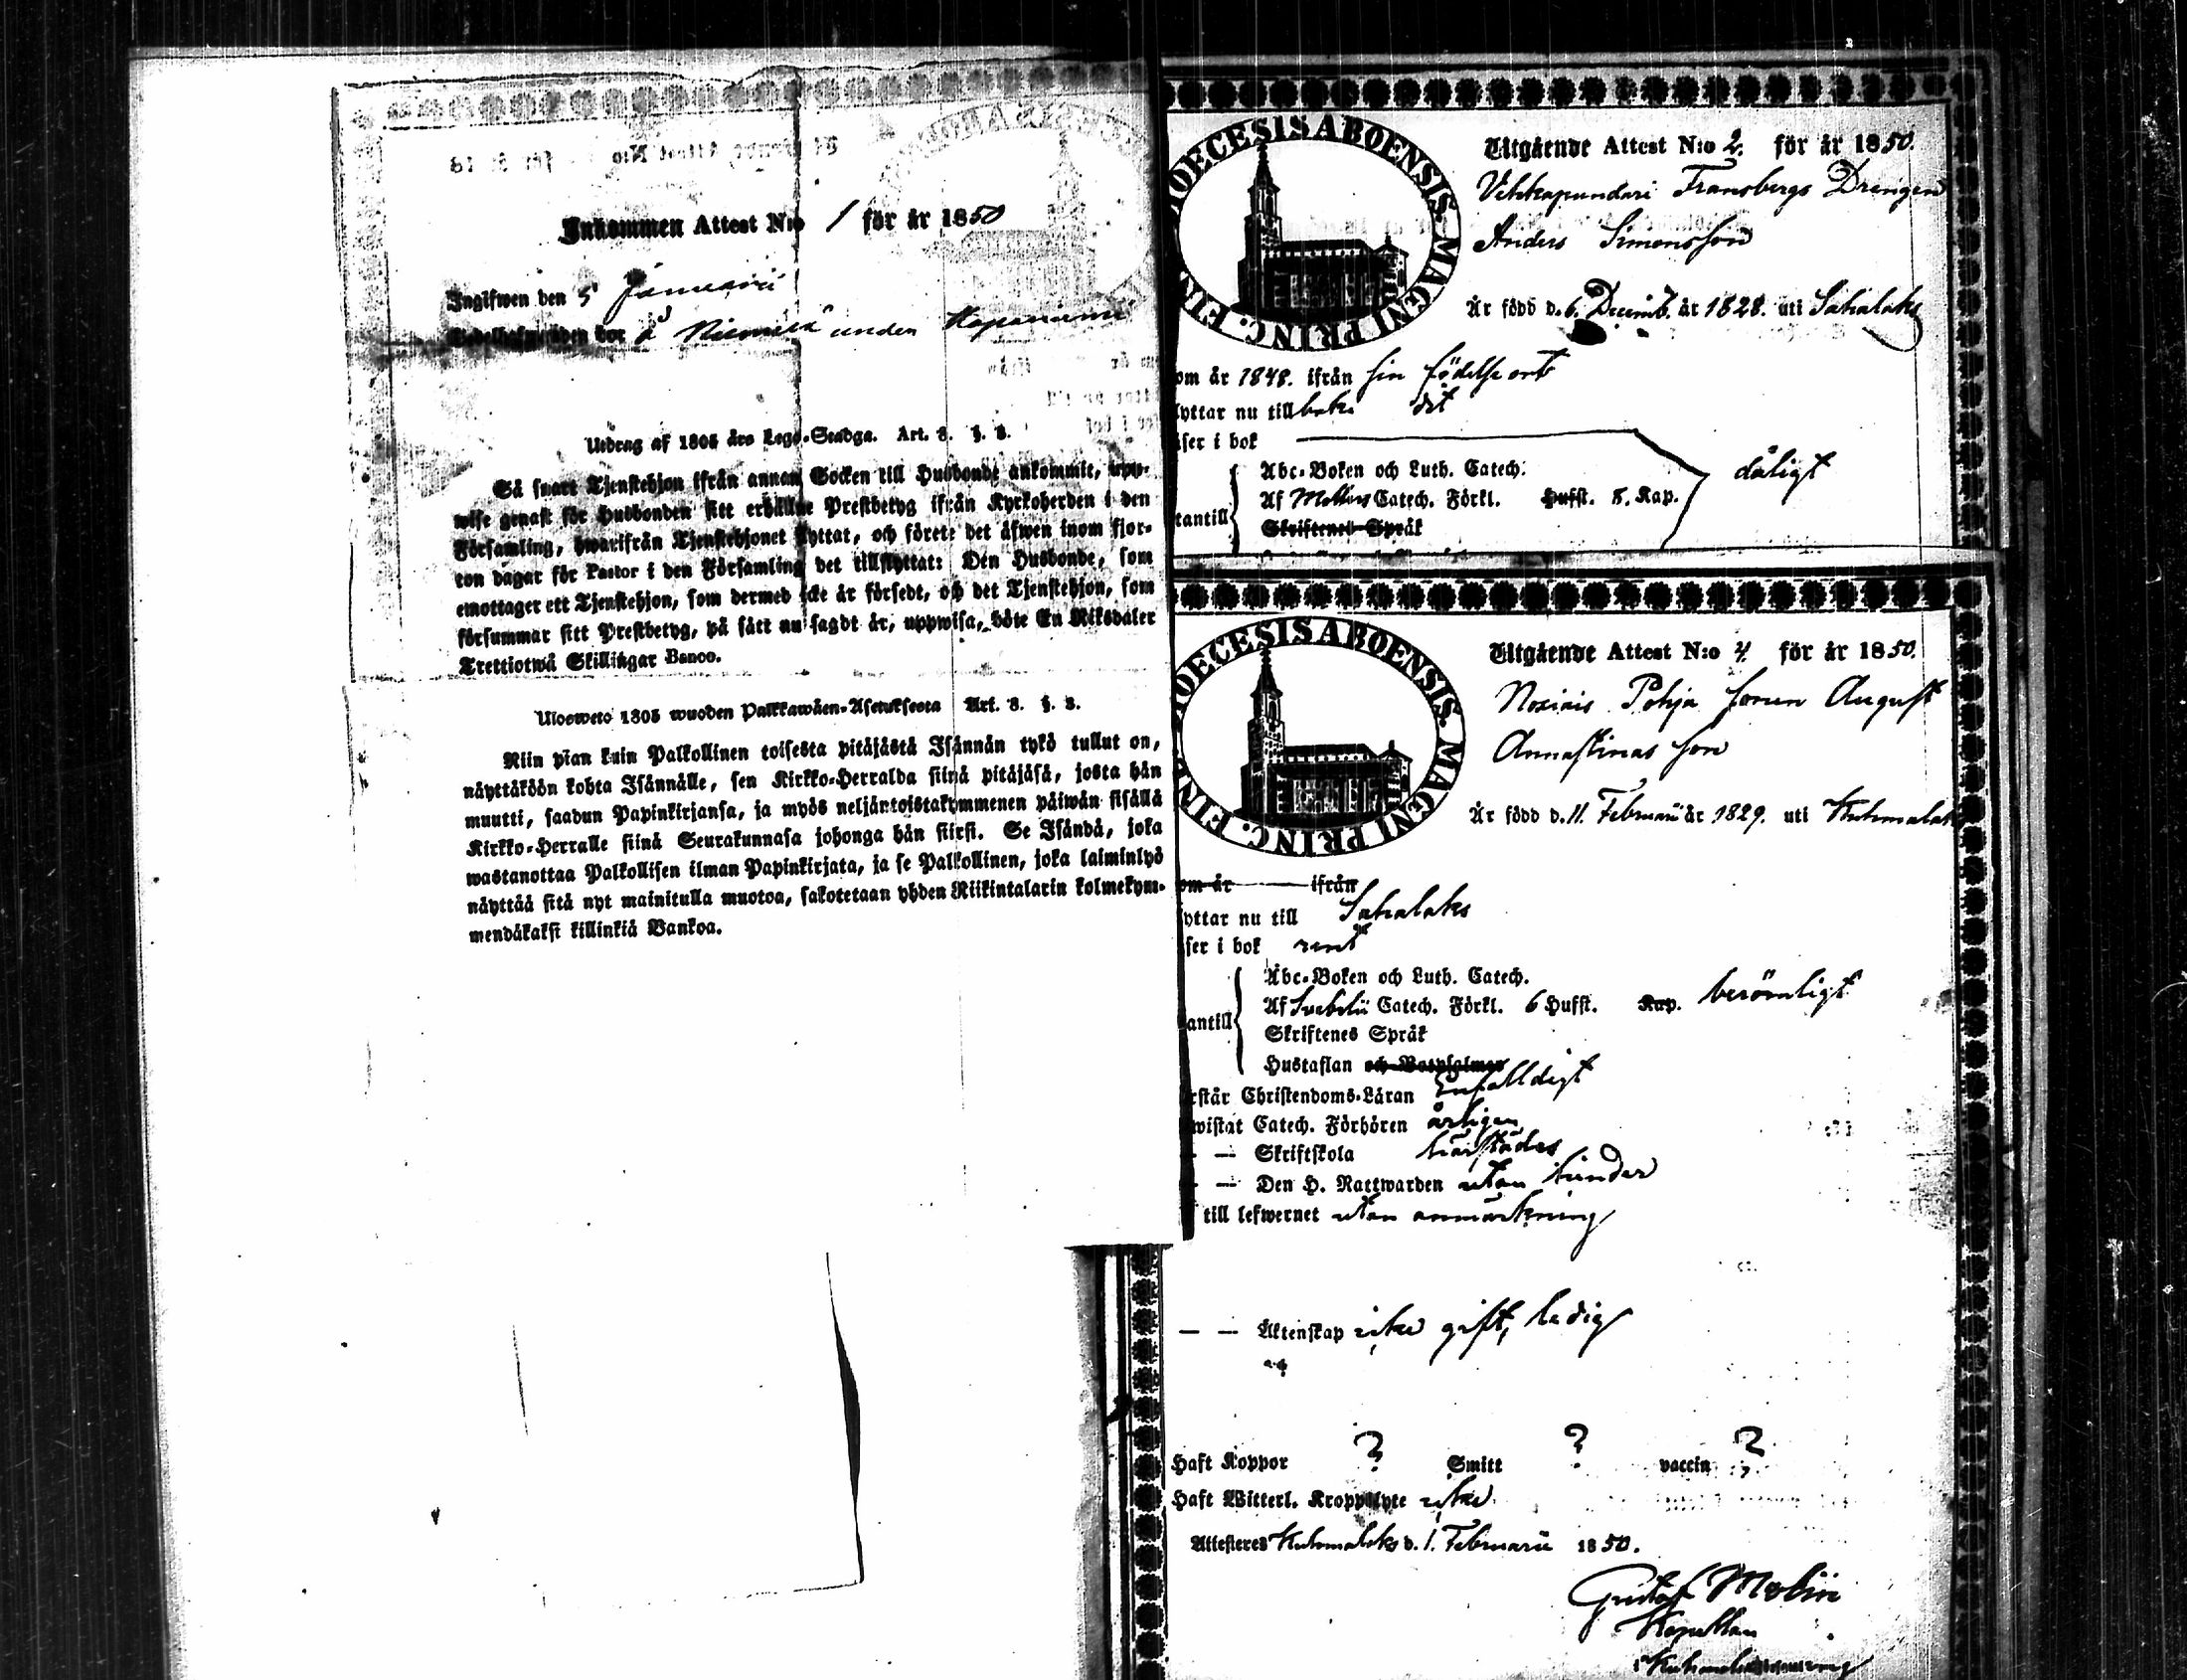 Inkommen Attest N:o 1 för år 1850
Ingifwen den 5 Januarii
å under
Utdrag af 1805 års Lego-Stadga. Art. 8. §. 3.
Så snart Tjenstehjon ifrån annan Socken till Husbonde ankommit, upp-
wise genast för Husbonden sitt erhållne Prestbetyg ifrån Kyrkoherden i den
Församling, hwarifrån Tjenstehjonet flyttat, och förete det äfwen inom fjor-
ton dagar för Pastor i den Församling det tillflyttat: Den Husbonde, som
emottager ett Tjenstehjon, som dermed icke är försedt, och det Tjenstehjon, som
försummar sitt Prestbetyg, på sätt nu sagdt är, uppwisa, böte En Riksdaler
Trettiotwå Skillingar Banco.
Ulosweto 1805 wuoden Palkkawäen-Asetuksesta Art. 8. §. 3.
Niin pian kuin Palkollinen toisesta pitäjästä Isännän tykö tullut on,
näyttäköön kohta Isännälle, sen Kirkko-Herralda siinä pitäjäsä, josta hän
muutti, saadun Papinkirjansa, ja myös neljäntoistakymmenen päiwän sisällä
Kirkko-Herralle siinä Seurakunnasa johonga hän siirsi. Se Isändä, joka
wastanottaa Palkollisen ilman Papinkirjata, ja se Palkollinen, joka laiminlyö
näyttää sitä nyt mainitulla muotoa, sakotetaan yhden Riikintalarin kolmekym-
mendäkaksi killinkiä Bankoa.
DIOECESIS ABOENSIS. MAGNI PRINC. FIN
Utgående Attest N:o 2. för år 1850.
Fransbergs Drengen
Anders Simonsson
Är född d. 6. Decemb. år 1828. uti Sahalaks
om år 1848. ifrån sin födelse ort
lyttar nu till baka dit
äser i bok
Abc-Boken och Luth. Catech. dåligt
Af Catech. Förkl. Hufst. 8. Kap.
tantill
Skriftenes Språk
DIOECESIS ABOENSIS. MAGNI PRINC. FIN
Utgående Attest N:o 4. för år 1850.
Pohja sonen August
Annastinas son
Är född d. 11. Februarii år 1829. uti Kuhmalaks
om år ifrån
yttar nu till Sahalaks
ser i bok rent
Abc-Boken och Luth. Catech.
Af Svebelii Catech. Förkl. 6 Hufst. Kap. berömligt
antill
Skriftenes Språk
Hustaflan och Botpsalmer
rstår Christendoms-Läran Enfalldigt
wistat Catech. Förhören årligen
— — Skriftskola härstädes
— — Den H. Nattwarden utan hinder
till lefwernet utan anmärkning
— — Äktenskap icke gift, ledig
Haft Koppor ? Smitt ? vaccin ?
Haft Witterl. Kroppslyte icke
Attesteres Kuhmalaks d. 1. Februarii 1850.
Gustaf Molin
Kapellan